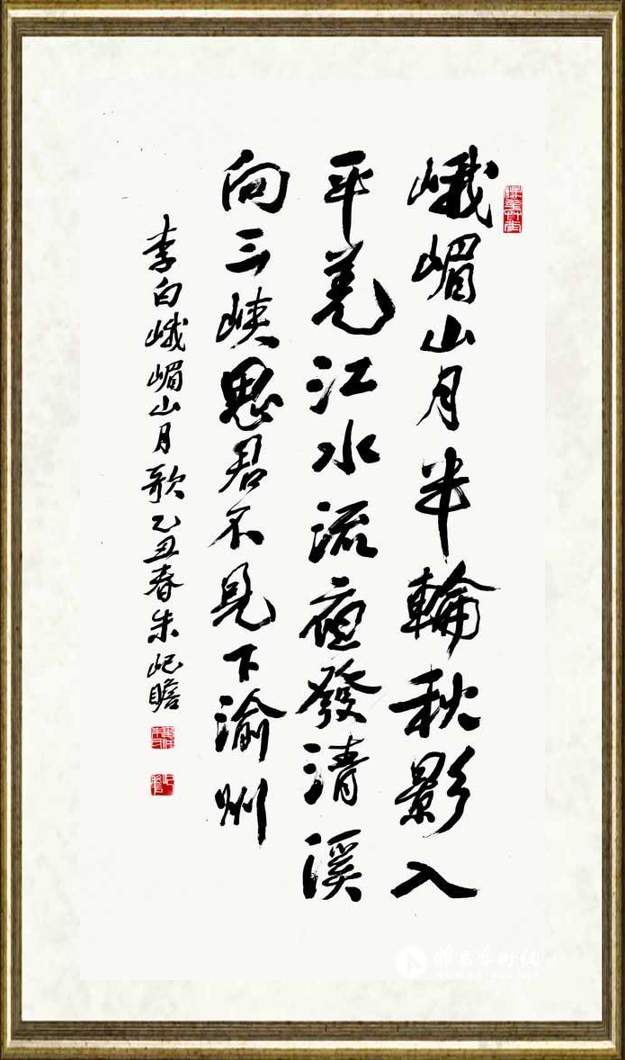 峨嵋山月半輪秋影入
平羌江水流夜發清溪
向三峽思君不見下渝州
李白峨嵋山月歌乙丑春朱屺瞻
雅昌艺术网